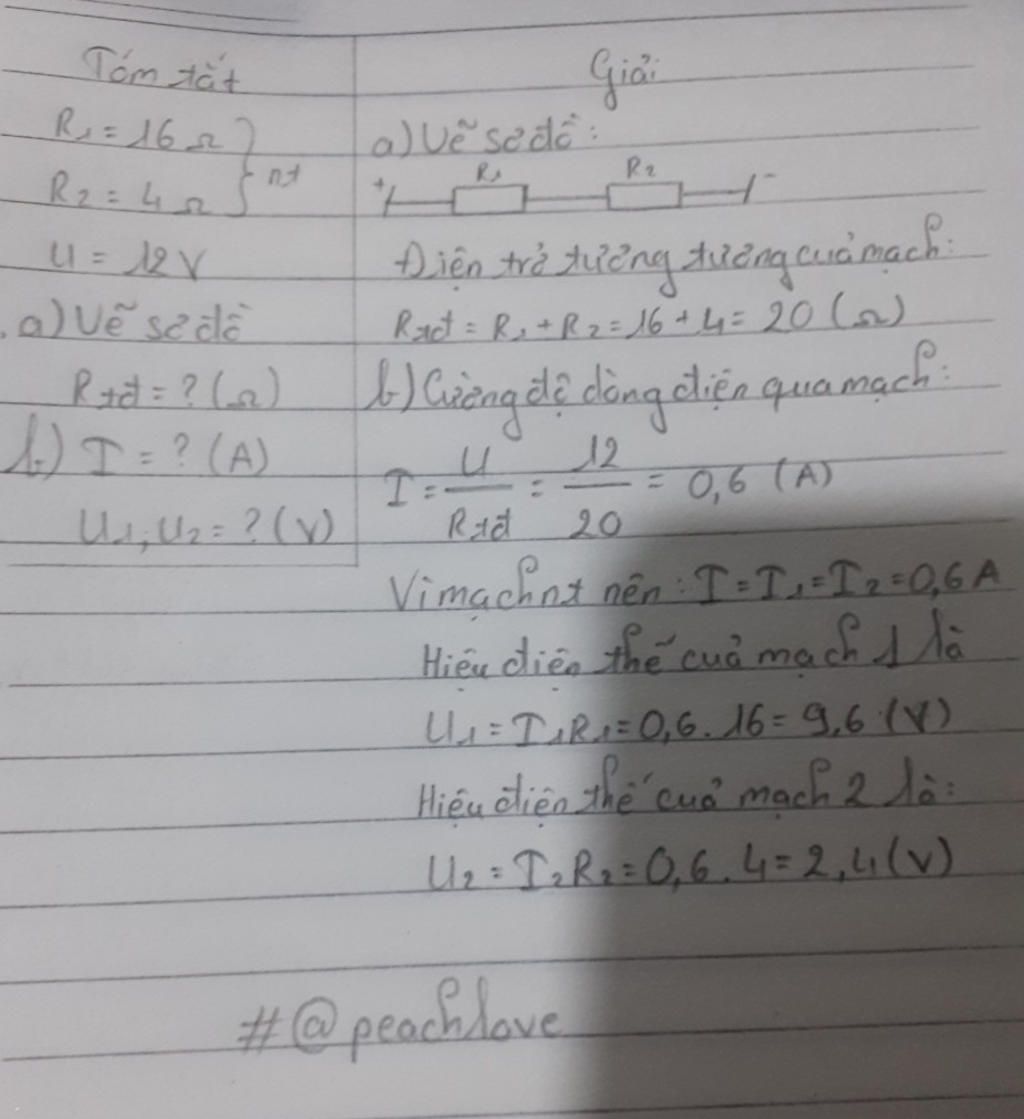 Tóm tắt
R1 = 16 Ω
R2 = 4 Ω
} nt
U = 12 V
a) Vẽ sơ đồ
Rtđ = ? (Ω)
b) I = ? (A)
U1, U2 = ? (V)
Giải
a) Vẽ sơ đồ:
+ R1 R2 -
Điện trở tương tương cuả mạch:
Rtđ = R1 + R2 = 16 + 4 = 20 (Ω)
b) Cường độ dòng điện qua mạch:
I = U/Rtđ = 12/20 = 0,6 (A)
Vì mạch nt nên: I = I1 = I2 = 0,6 A
Hiệu điện thế cuả mạch 1 là
U1 = I1R1 = 0,6 . 16 = 9,6 (V)
Hiệu điện thế cuả mạch 2 là:
U2 = I2R2 = 0,6 . 4 = 2,4 (V)
#@peachlove